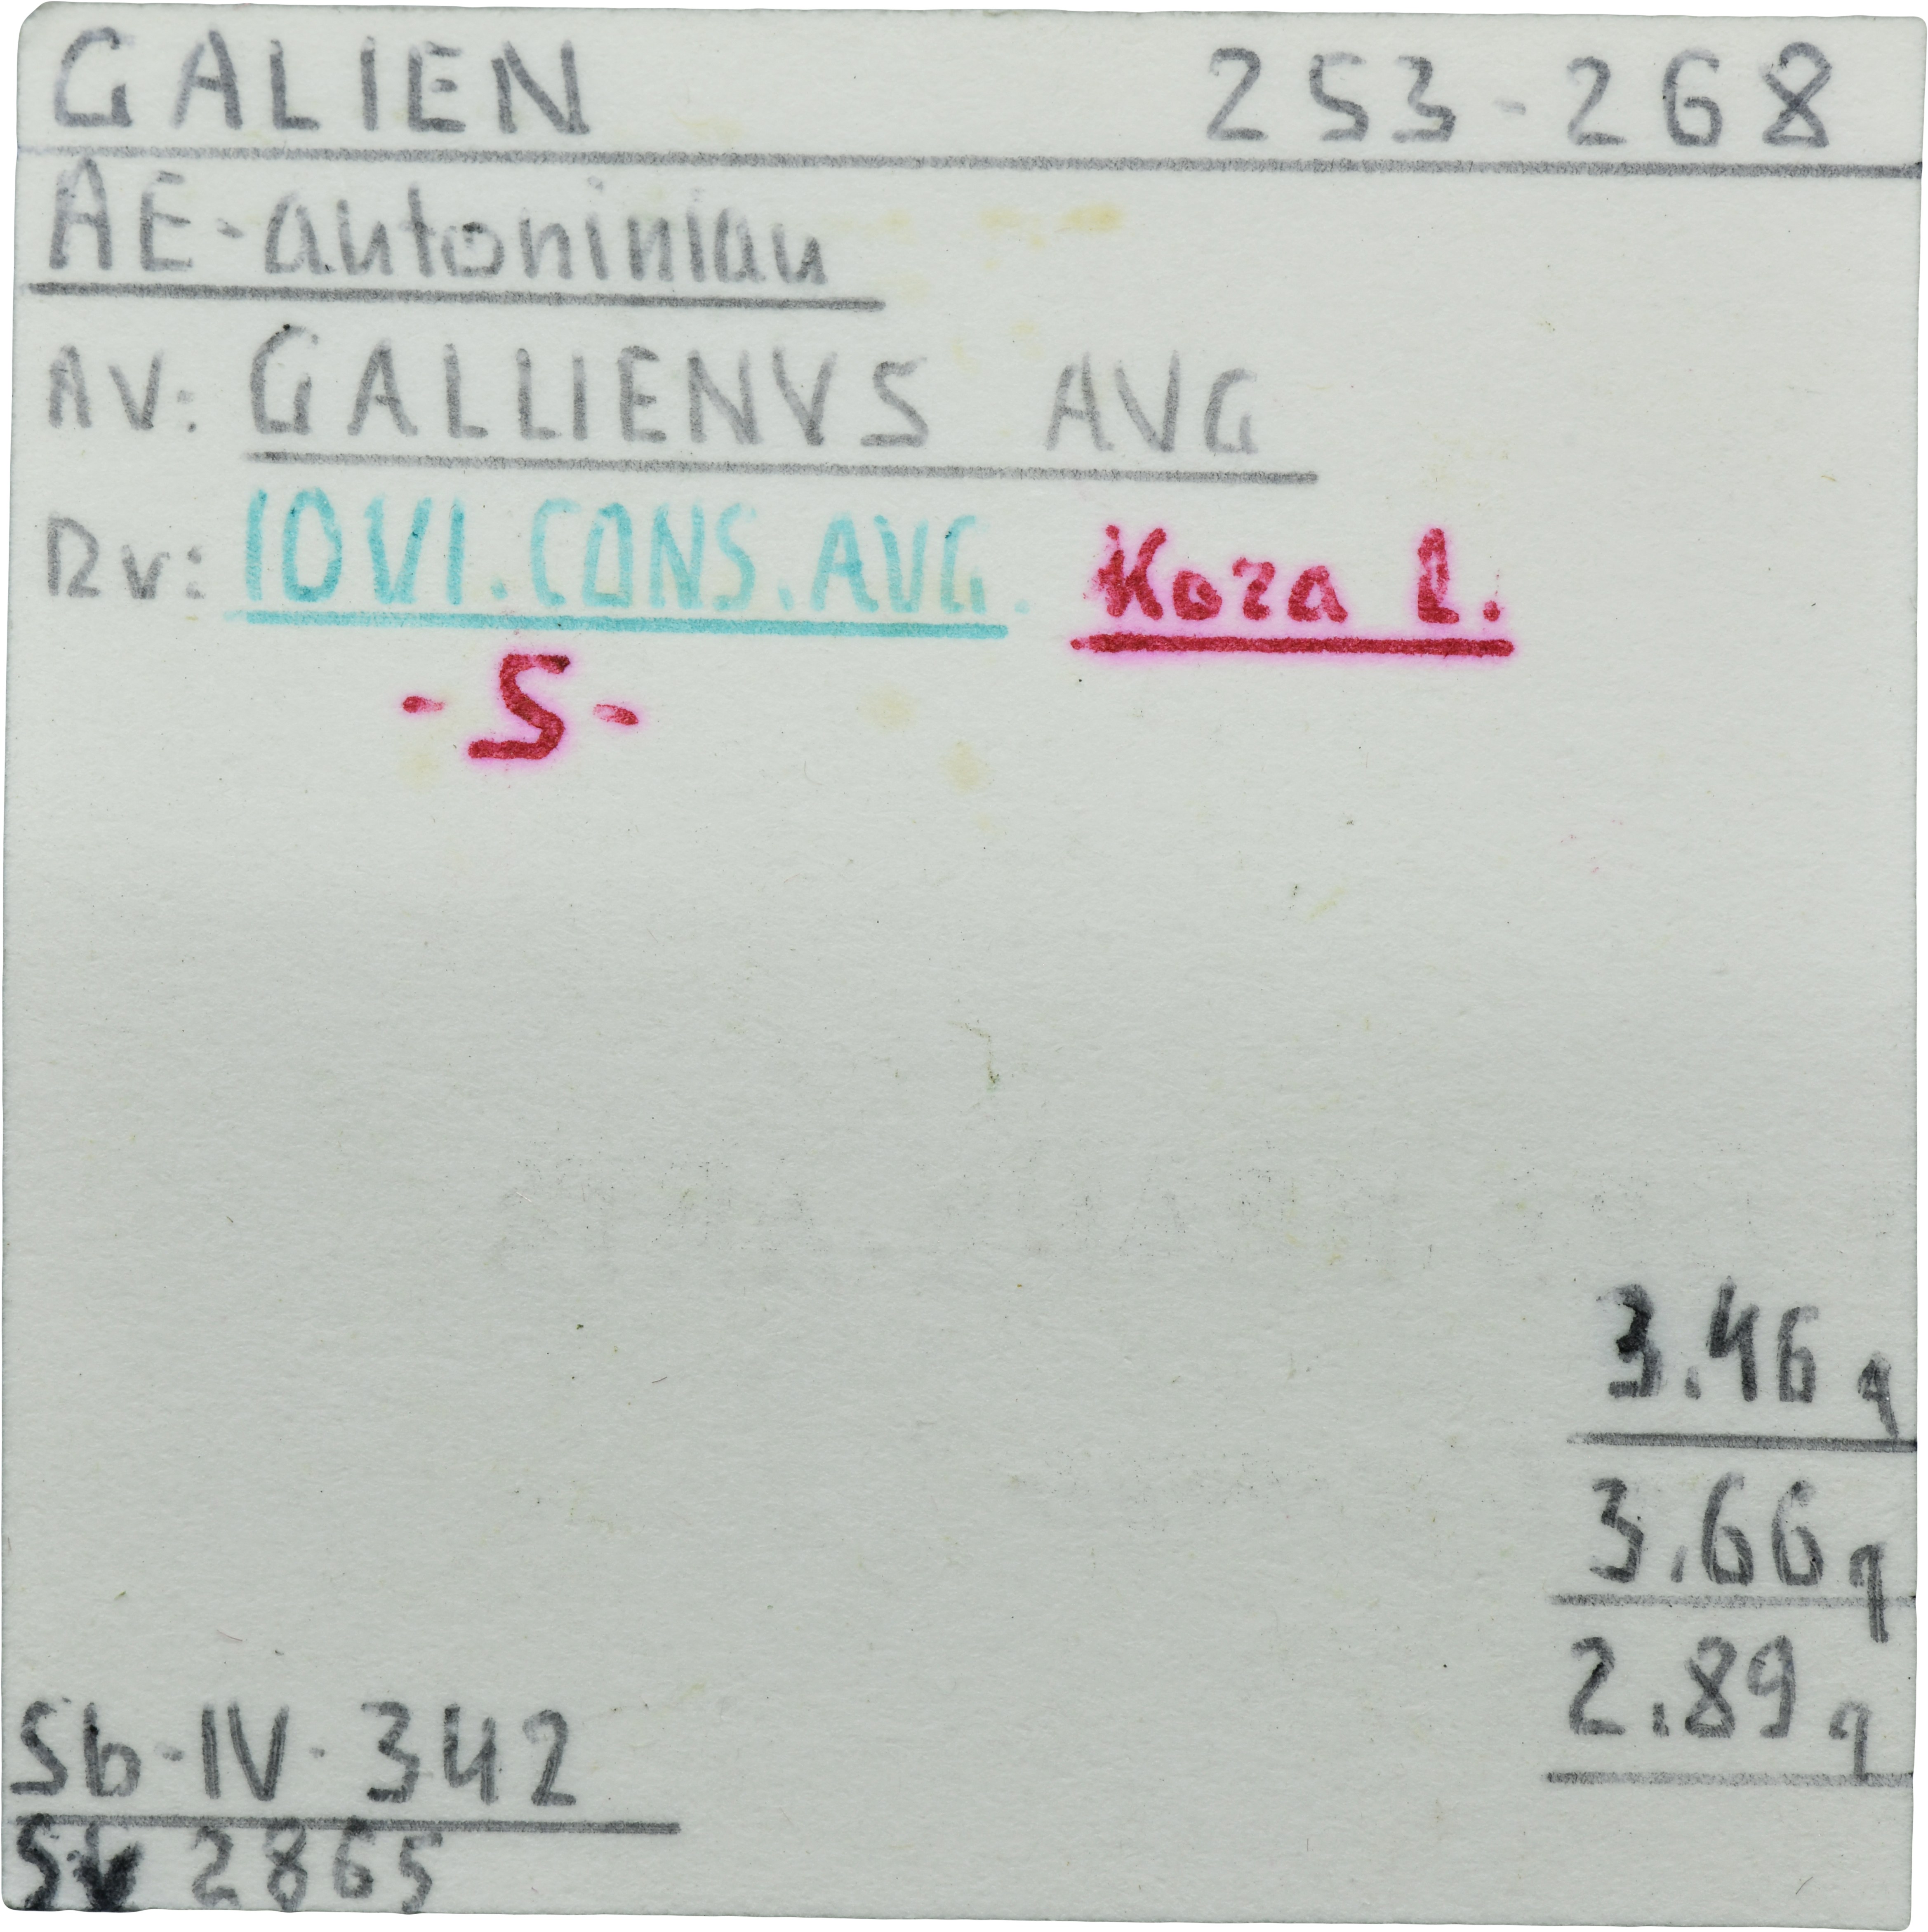 GALIEN 253-268
AE-antoninian
AV: GALLIENVS AVG
Rv: IOVI.CONS.AVG. Koza l.
-S-
3.46 g
3.66 g
2.89 g
Sb-IV-342
Sb 2865